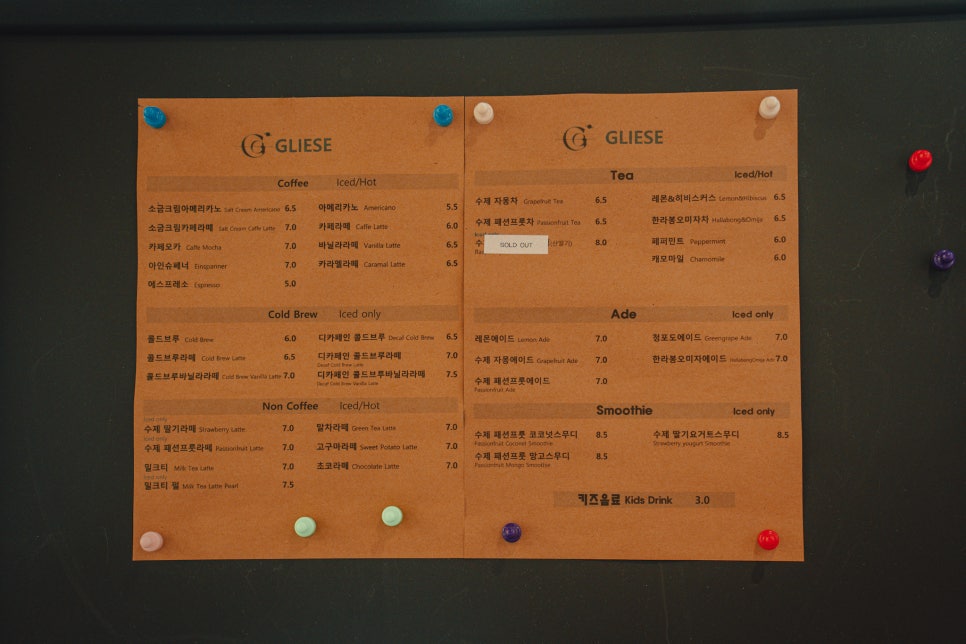 GLIESE
Coffee Iced/Hot
소금크림아메리카노 Salt Cream Americano 6.5
소금크림카페라떼 Salt Cream Caffe Latte 7.0
카페모카 Caffe Mocha 7.0
아인슈페너 Einspanner 7.0
에스프레소 Espresso 5.0
아메리카노 Americano 5.5
카페라떼 Caffe Latte 6.0
바닐라라떼 Vanilla Latte 6.5
카라멜라떼 Caramal Latte 6.5
Cold Brew Iced only
콜드브루 Cold Brew 6.0
콜드브루라떼 Cold Brew Latte 6.5
콜드브루바닐라라떼 Cold Brew Vanilla Latte 7.0
디카페인 콜드브루 Decaf Cold Brew 6.5
디카페인 콜드브루라떼 7.0
Decaf Cold Brew Latte
디카페인 콜드브루바닐라라떼 7.5
Decaf Cold Brew Vanilla Latte
Non Coffee Iced/Hot
Iced only
수제 딸기라떼 Strawberry Latte 7.0
Iced only
수제 패션프룻라떼 Passionfruit Latte 7.0
밀크티 Milk Tea Latte 7.0
Iced only
밀크티 펄 Milk Tea Latte Pearl 7.5
말차라떼 Green Tea Latte 7.0
고구마라떼 Sweet Potato Latte 7.0
초코라떼 Chocolate Latte 7.0
GLIESE
Tea Iced/Hot
수제 자몽차 Grapefruit Tea 6.5
수제 패션프룻차 Passionfruit Tea 6.5
SOLD OUT 8.0
레몬&히비스커스 Lemon&Hibiscus 6.5
한라봉오미자차 Hallabong&Omija 6.5
페퍼민트 Peppermint 6.0
캐모마일 Chamomile 6.0
Ade Iced only
레몬에이드 Lemon Ade 7.0
수제 자몽에이드 Grapefruit Ade 7.0
수제 패션프룻에이드 7.0
Passionfruit Ade
청포도에이드 Greengrape Ade 7.0
한라봉오미자에이드 Hallabong&Omija Ade 7.0
Smoothie Iced only
수제 패션프룻 코코넛스무디 8.5
Passionfruit Coconut Smoothie
수제 패션프룻 망고스무디 8.5
Passionfruit Mango Smoothie
수제 딸기요거트스무디 8.5
Strawberry yougurt Smoothie
키즈음료 Kids Drink 3.0